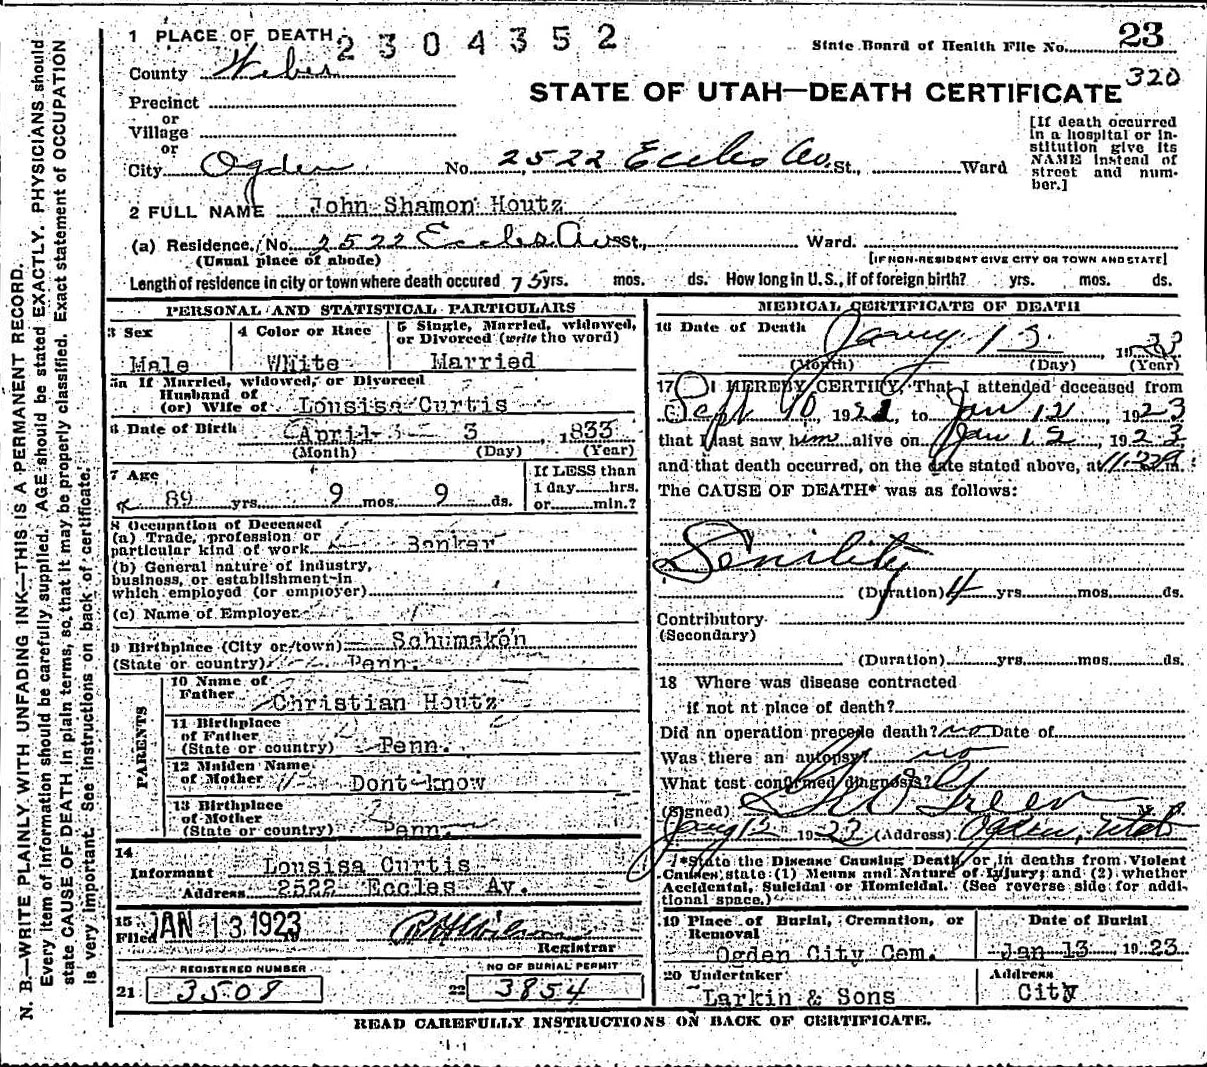 1 PLACE OF DEATH 2304352
State Board of Health File No. 23
County Weber
320
STATE OF UTAH—DEATH CERTIFICATE
Precinct
or
Village
or
City Ogden No. 2522 Eccles Av. St., Ward
[If death occurred in a hospital or institution give its NAME instead of street and number.]
2 FULL NAME John Shamon Houtz
(a) Residence, No. 2522 Eccles Av St., Ward.
(Usual place of abode) [IF NON-RESIDENT GIVE CITY OR TOWN AND STATE]
Length of residence in city or town where death occured 75 yrs. mos. ds. How long in U.S., if of foreign birth? yrs. mos. ds.
PERSONAL AND STATISTICAL PARTICULARS
3 Sex Male
4 Color or Race White
5 Single, Married, widowed, or Divorced (write the word) Married
5a If Married, widowed, or Divorced
Husband of
(or) Wife of Lousisa Curtis
6 Date of Birth April 3, 1833
(Month) (Day) (Year)
7 Age 89 yrs. 9 mos. 9 ds.
If LESS than
1 day hrs.
or min.?
8 Occupation of Deceased
(a) Trade, profession or
particular kind of work Banker
(b) General nature of industry,
business, or establishment in
which employed (or employer)
(c) Name of Employer
9 Birthplace (City or town) Schumakon
(State or country) Penn.
PARENTS
10 Name of
Father Christian Houtz
11 Birthplace
of Father
(State or country) Penn.
12 Maiden Name
of Mother Dont know
13 Birthplace
of Mother
(State or country) Penn
14
Informant Lousisa Curtis
Address 2522 Eccles Av.
15 Filed JAN 13 1923
Registrar
REGISTERED NUMBER
21 3508
NO OF BURIAL PERMIT
22 3854
MEDICAL CERTIFICATE OF DEATH
16 Date of Death
Jany 19
(Month) (Day) (Year)
17 I HEREBY CERTIFY, That I attended deceased from
Sept 10 192 , to Jan 12, 1923
that I last saw him alive on Jan 12, 1923
and that death occurred, on the date stated above, at m.
The CAUSE OF DEATH* was as follows:
Senility
(Duration) 4 yrs. mos. ds.
Contributory
(Secondary)
(Duration) yrs. mos. ds.
18 Where was disease contracted
if not at place of death?
Did an operation precede death? no Date of
Was there an autopsy? no
What test confirmed diagnosis?
(Signed) Green
Jany 13 19 (Address) Ogden, Utah
*State the Disease Causing Death, or in deaths from Violent
Causes, state (1) Means and Nature of Injury; and (2) whether
Accidental, Suicidal or Homicidal. (See reverse side for addi-
tional space.)
19 Place of Burial, Cremation, or
Removal
Ogden City Cem.
Date of Burial
Jan 13 1923
20 Undertaker
Larkin & Sons
Address
City
READ CAREFULLY INSTRUCTIONS ON BACK OF CERTIFICATE.
N. B.—WRITE PLAINLY WITH UNFADING INK—THIS IS A PERMANENT RECORD.
Every item of information should be carefully supplied. AGE should be stated EXACTLY. PHYSICIANS should
state CAUSE OF DEATH in plain terms, so that it may be properly classified. Exact statement of OCCUPATION
is very important. See instructions on back of certificate.